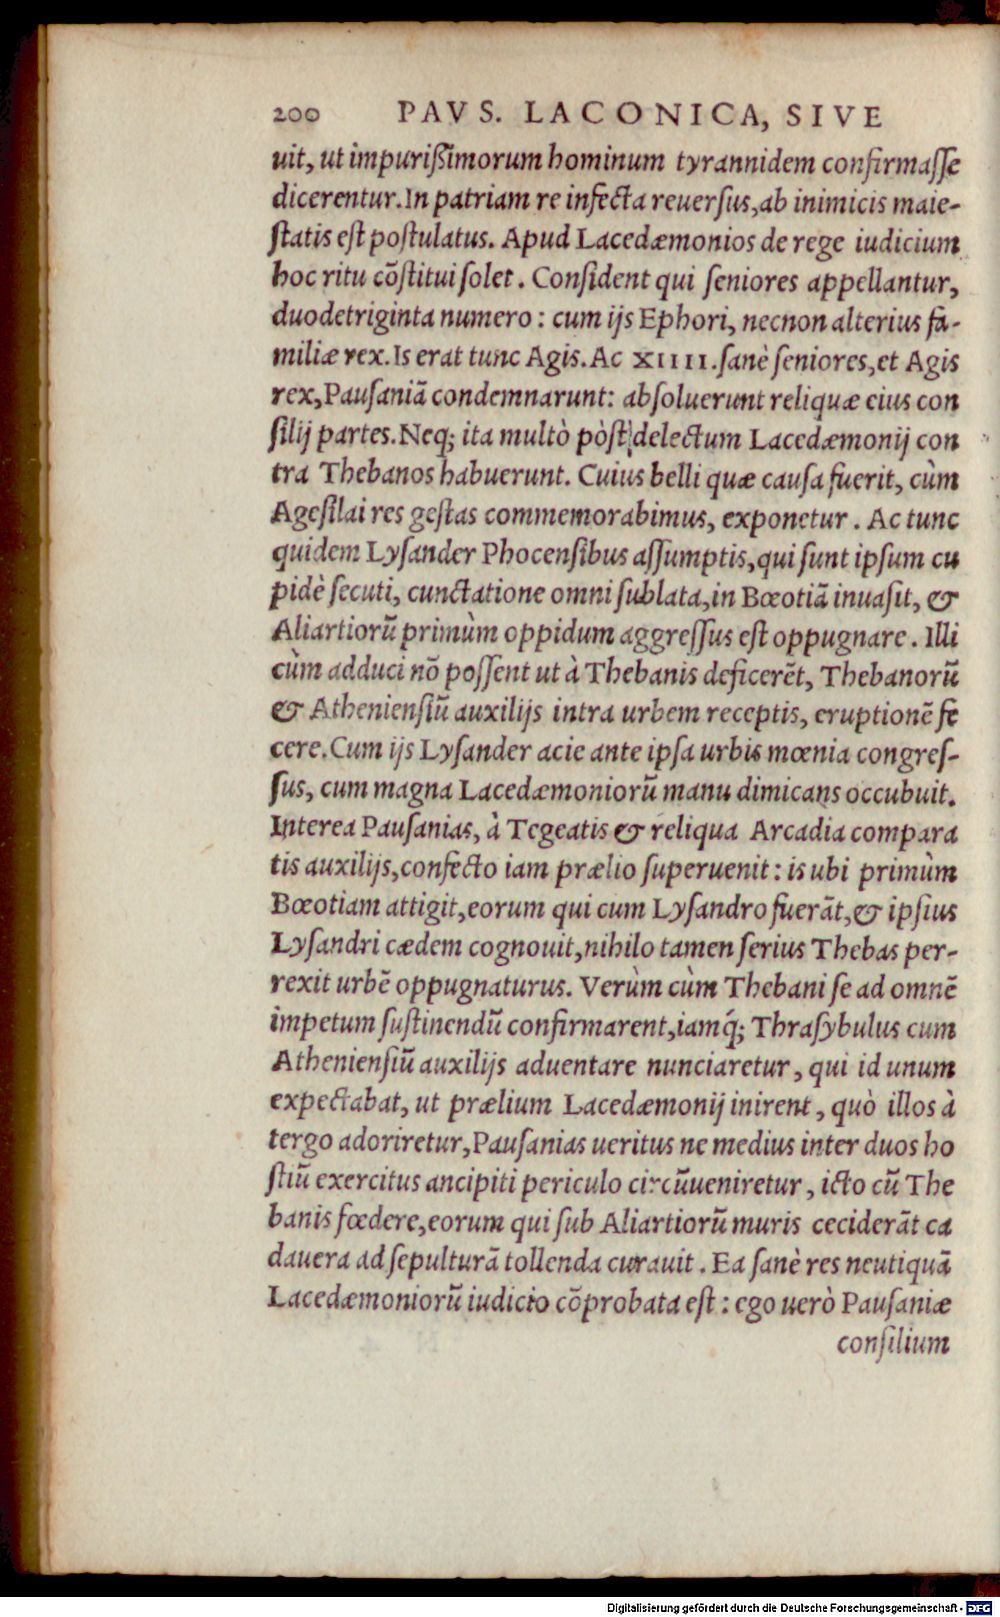 200 PAVS. LACONICA, SIVE
uit, ut impurißimorum hominum tyrannidem confirmaſſe
dicerentur. In patriam re infecta reuerſus, ab inimicis maie-
ſtatis eſt poſtulatus. Apud Lacedæmonios de rege iudicium
hoc ritu cõſtitui ſolet. Conſident qui ſeniores appellantur,
duodetriginta numero: cum ijs Ephori, necnon alterius fa-
miliæ rex. Is erat tunc Agis. Ac XIIII. ſanè ſeniores, et Agis
rex, Pauſaniã condemnarunt: abſoluerunt reliquæ eius con
ſilij partes. Neq; ita multò pòſt delectum Lacedæmonij con
tra Thebanos habuerunt. Cuius belli quæ cauſa fuerit, cùm
Ageſilai res geſtas commemorabimus, exponetur. Ac tunc
quidem Lyſander Phocenſibus aſſumptis, qui ſunt ipſum cu
pidè ſecuti, cunctatione omni ſublata, in Bœotiã inuaſit, &
Aliartiorũ primùm oppidum aggreſſus eſt oppugnare. Illi
cùm adduci nõ poſſent ut à Thebanis deficerẽt, Thebanorũ
& Athenienſiũ auxilijs intra urbem receptis, eruptionẽ fe
cere. Cum ijs Lyſander acie ante ipſa urbis mœnia congreſ-
ſus, cum magna Lacedæmoniorũ manu dimicans occubuit.
Interea Pauſanias, à Tegeatis & reliqua Arcadia compara
tis auxilijs, confecto iam prælio ſuperuenit: is ubi primùm
Bœotiam attigit, eorum qui cum Lyſandro fuerãt, & ipſius
Lyſandri cædem cognouit, nihilo tamen ſerius Thebas per-
rexit urbẽ oppugnaturus. Verùm cùm Thebani ſe ad omnẽ
impetum ſuſtinendũ confirmarent, iamq́; Thraſybulus cum
Athenienſiũ auxilijs aduentare nunciaretur, qui id unum
expectabat, ut prælium Lacedæmonij inirent, quò illos à
tergo adoriretur, Pauſanias ueritus ne medius inter duos ho
ſtiũ exercitus ancipiti periculo circũueniretur, icto cũ The
banis fœdere, eorum qui ſub Aliartiorũ muris ceciderãt ca
dauera ad ſepulturã tollenda curauit. Ea ſanè res neutiquã
Lacedæmoniorũ iudicio cõprobata eſt: ego uerò Pauſaniæ
conſilium
Digitalisierung gefördert durch die Deutsche Forschungsgemeinschaft - DFG